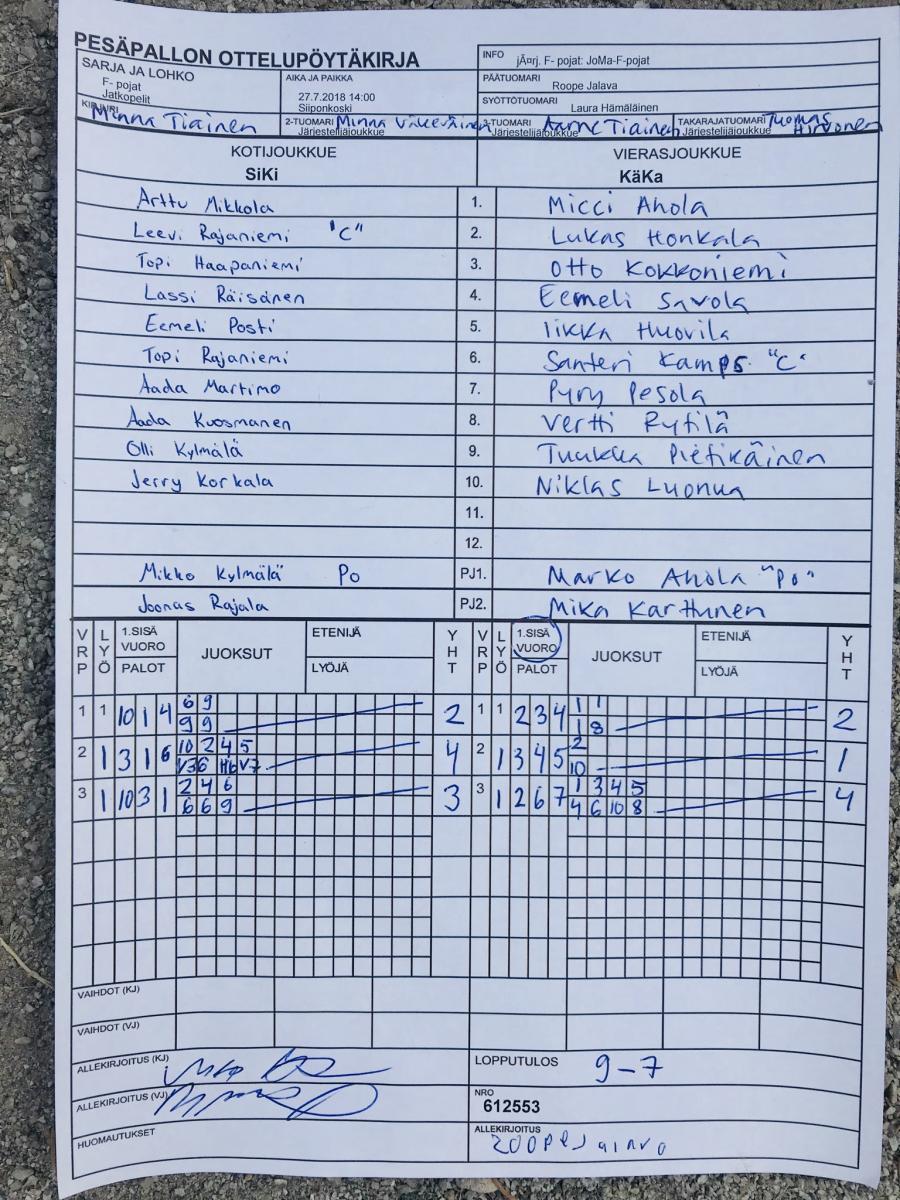 PESÄPALLON OTTELUPÖYTÄKIRJA
INFO jÃ¤rj. F- pojat: JoMa-F-pojat
SARJA JA LOHKO
F- pojat
Jatkopelit
AIKA JA PAIKKA
27.7.2018 14:00
Siiponkoski
PÄÄTUOMARI
Roope Jalava
SYÖTTÖTUOMARI
Laura Hämäläinen
KIRJURI Minna Tiainen
2-TUOMARI Minna
Järjestelijäjoukkue
3-TUOMARI Aarne Tiainen
Järjestelijäjoukkue
TAKARAJATUOMARI Tuomas Hirvonen
Järjestelijäjoukkue
KOTIJOUKKUE VIERASJOUKKUE
SiKi KäKa
Arttu Mikkola 1. Micci Ahola
Leevi Rajaniemi "C" 2. Lukas Honkala
Topi Haapaniemi 3. Otto Kokkoniemi
Lassi Räisänen 4. Eemeli Savola
Eemeli Posti 5. Iikka Huovila
Topi Rajaniemi 6. Santeri Kamps "C"
Aada Martimo 7. Pyry Pesola
Aada Kuosmanen 8. Vertti Rytilä
Olli Kylmälä 9. Tuukka Pietikäinen
Jerry Korkala 10. Niklas Luonua
11.
12.
Mikko Kylmälä Po PJ1. Marko Ahola "Po"
Joonas Rajala PJ2. Mika Karttunen
VRP LYÖ 1.SISÄ VUORO PALOT JUOKSUT ETENIJÄ LYÖJÄ YHT VRP LYÖ 1.SISÄ VUORO PALOT JUOKSUT ETENIJÄ LYÖJÄ YHT
1 1 10 1 4 6 9 2 1 1 2 3 4 1 1 2
9 9 1 8
2 1 3 1 6 10 2 4 5 4 2 1 3 4 5 2 1
V3 6 V7 10
3 1 10 3 1 2 4 6 3 3 1 2 6 7 1 3 4 5 4
6 6 9 4 6 10 8
VAIHDOT (KJ)
VAIHDOT (VJ)
ALLEKIRJOITUS (KJ) LOPPUTULOS 9-7
ALLEKIRJOITUS (VJ) NRO
612553
HUOMAUTUKSET ALLEKIRJOITUS